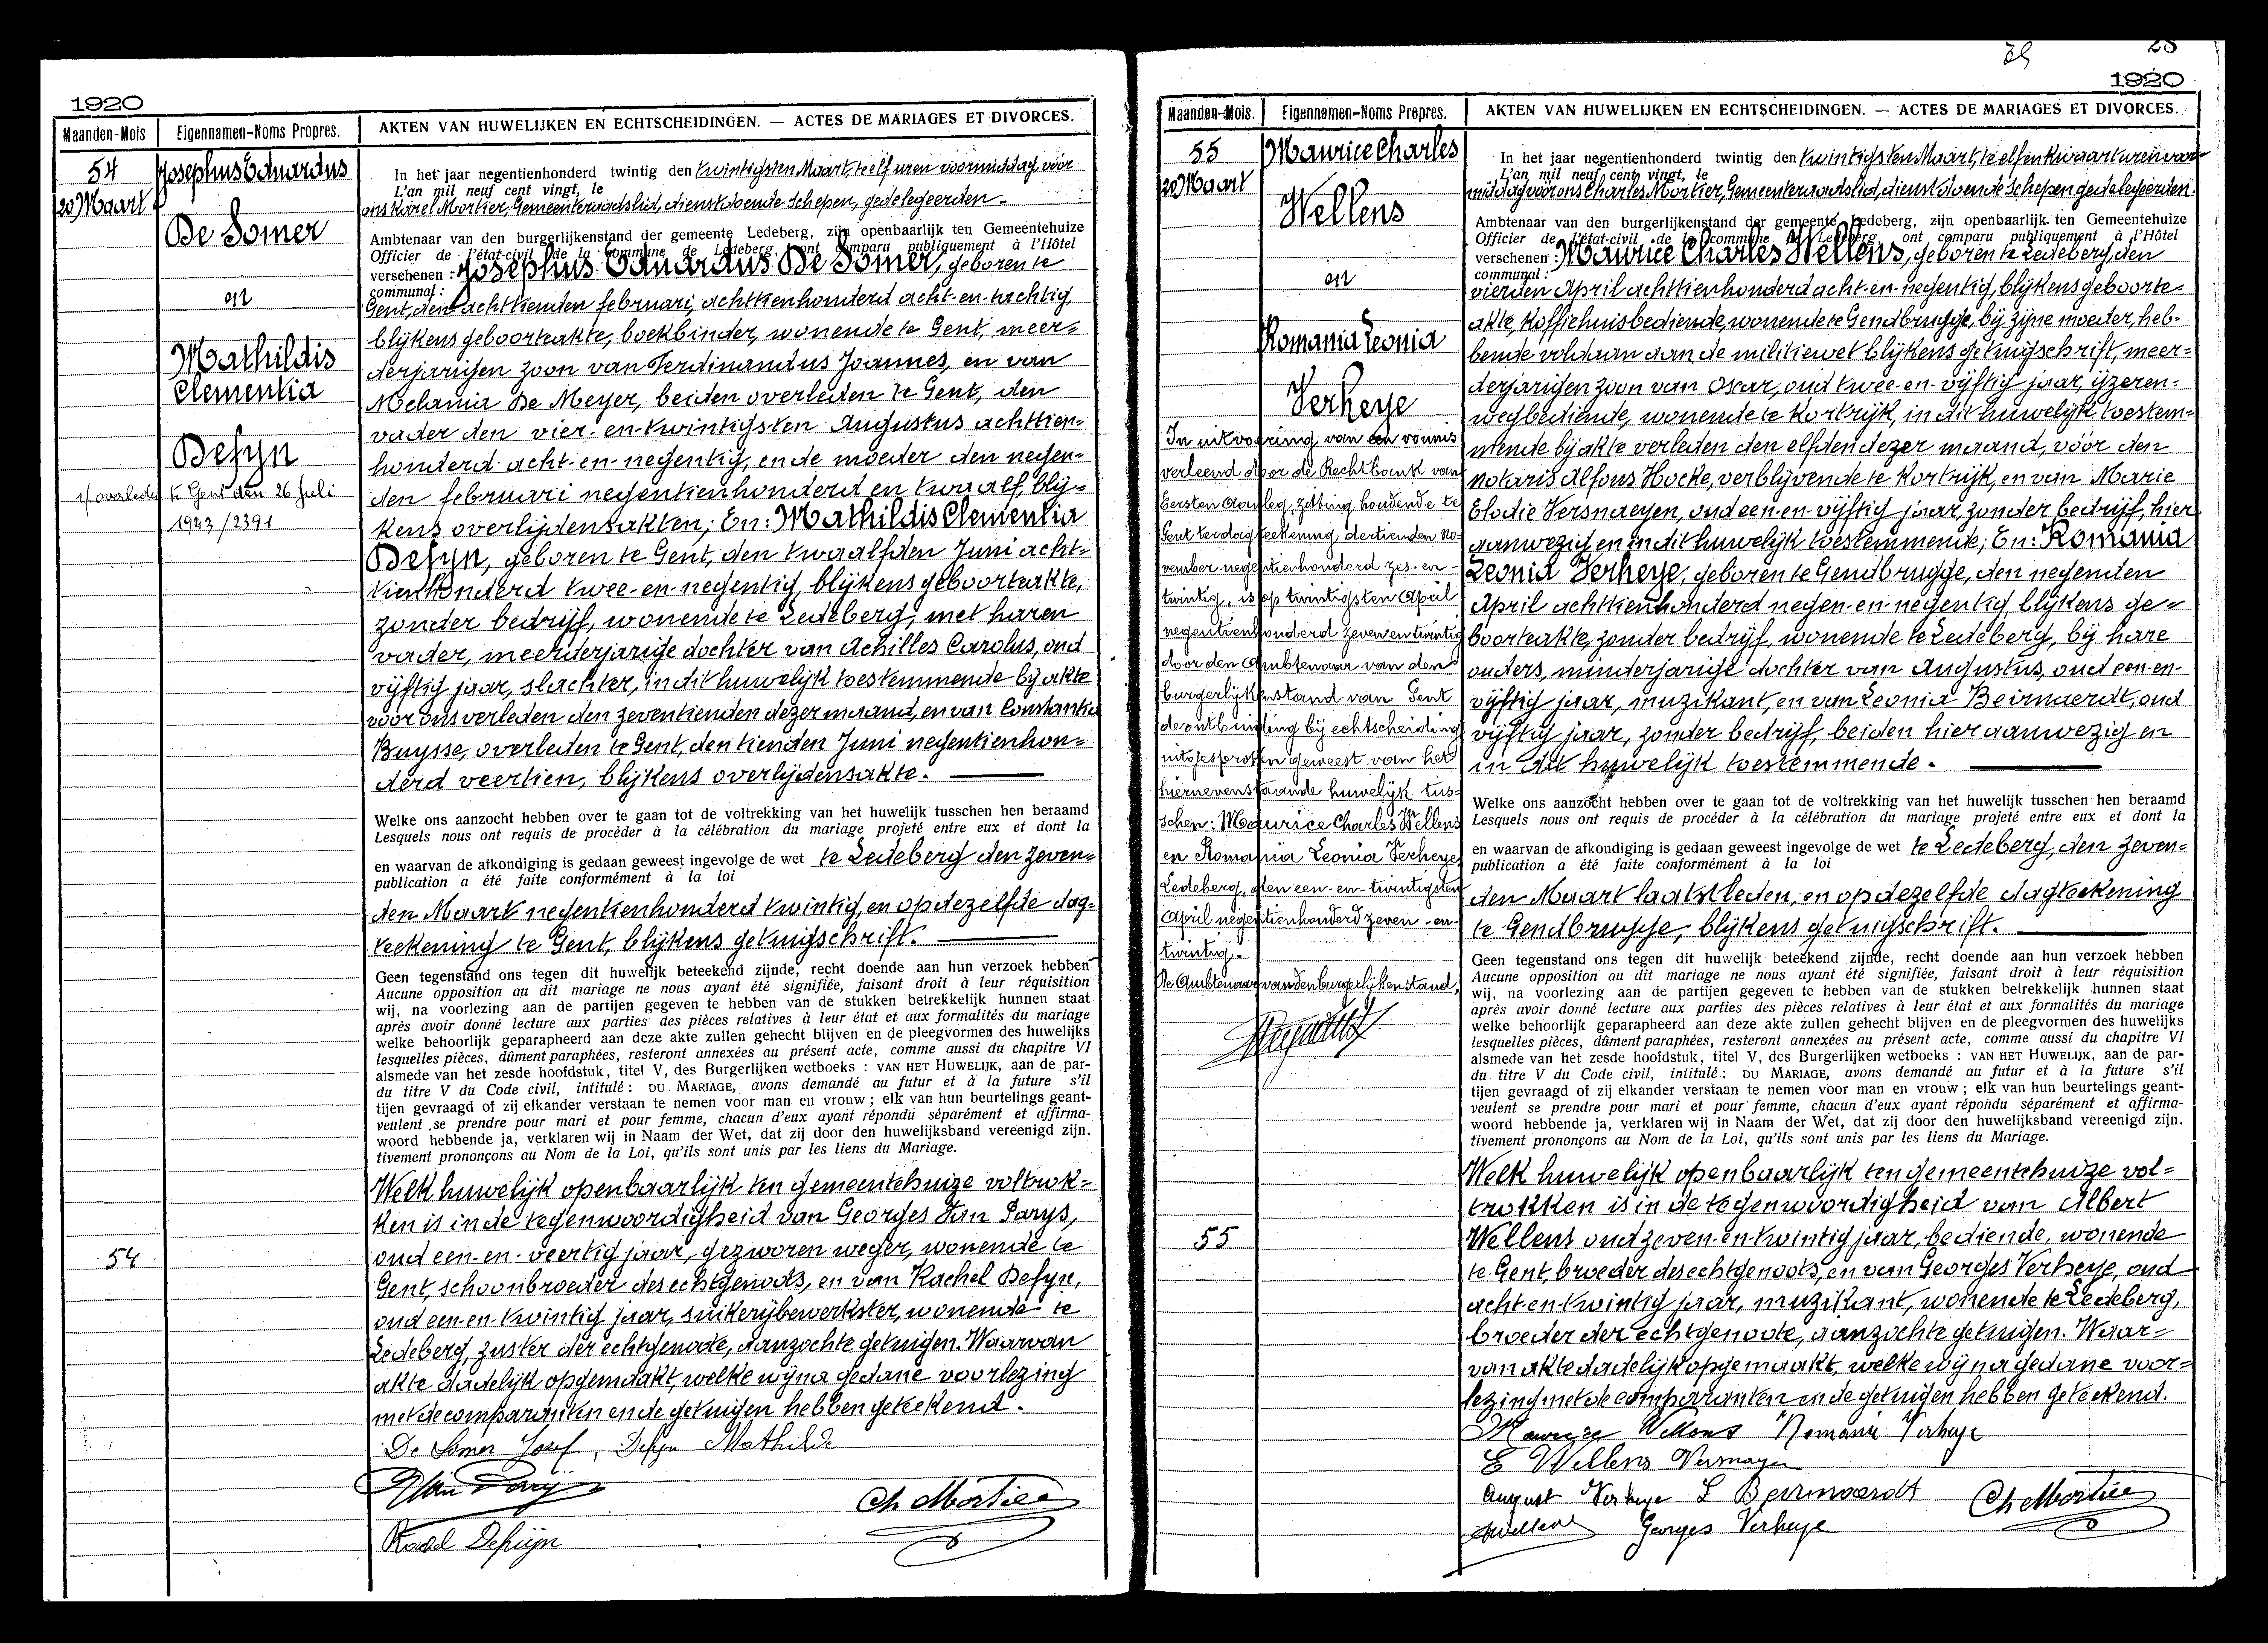 1920
Maanden-Mois
Eigennamen-Noms Propres.
AKTEN VAN HUWELIJKEN EN ECHTSCHEIDINGEN. — ACTES DE MARIAGES ET DIVORCES.
54
20 Maart
Josephus Eduardus
De Somer
en
Mathildis
Clementia
Defyn
1/ overleden te Gent den 26 Juli
1943/2391
54
In het jaar negentienhonderd twintig den twintigsten Maart, te elf uren voormiddag, vóór
L'an mil neuf cent vingt, le
ons Karel Mortier, Gemeenteraadslid, dienstdoende Schepen, gedelegeerden
Ambtenaar van den burgerlijkenstand der gemeente Ledeberg, zijn openbaarlijk ten Gemeentehuize
Officier de l'état-civil de la commune de Ledeberg, ont comparu publiquement à l'Hôtel
verschenen : Josephus Eduardus De Somer, geboren te
communal :
Gent, den achttienden februari, achttienhonderd acht-en-tachtig,
blijkens geboorteakte, boekbinder, wonende te Gent, meer=
derjarigen zoon van Ferdinandus Joannes, en van
Melania De Meyer, beiden overleden te Gent, den
vader den vier-en-twintigsten Augustus achttien=
honderd acht-en-negentig, en de moeder den negen=
den februari negentienhonderd en twaalf, blij=
kens overlijdensakten; En: Mathildis Clementia
Defyn, geboren te Gent, den twaalfden Juni acht=
tienhonderd twee-en-negentig, blijkens geboorteakte,
zonder bedrijf, wonende te Ledeberg, met haren
vader, meerderjarige dochter van Achilles Carolus, oud
vijftig jaar, slachter, in dit huwelijk toestemmende bij akte
voor ons verleden den zeventienden dezer maand, en van Constantia
Buysse, overleden te Gent, den tienden Juni negentienhon=
derd veertien, blijkens overlijdensakte.
Welke ons aanzocht hebben over te gaan tot de voltrekking van het huwelijk tusschen hen beraamd
Lesquels nous ont requis de procéder à la célébration du mariage projeté entre eux et dont la
en waarvan de afkondiging is gedaan geweest ingevolge de wet te Ledeberg den zeven=
publication a été faite conformément à la loi
den Maart negentienhonderd twintig, en op dezelfde dag=
teekening te Gent, blijkens getuigschrift.
Geen tegenstand ons tegen dit huwelijk beteekend zijnde, recht doende aan hun verzoek hebben
Aucune opposition au dit mariage ne nous ayant été signifiée, faisant droit à leur réquisition
wij, na voorlezing aan de partijen gegeven te hebben van de stukken betrekkelijk hunnen staat
après avoir donné lecture aux parties des pièces relatives à leur état et aux formalités du mariage
welke behoorlijk geparapheerd aan deze akte zullen gehecht blijven en de pleegvormen des huwelijks
lesquelles pièces, dûment paraphées, resteront annexées au présent acte, comme aussi du chapitre VI
alsmede van het zesde hoofdstuk, titel V, des Burgerlijken wetboeks : VAN HET HUWELIJK, aan de par-
du titre V du Code civil, intitulé : DU MARIAGE, avons demandé au futur et à la future s'il
tijen gevraagd of zij elkander verstaan te nemen voor man en vrouw ; elk van hun beurtelings geant-
veulent se prendre pour mari et pour femme, chacun d'eux ayant répondu séparément et affirma-
woord hebbende ja, verklaren wij in Naam der Wet, dat zij door den huwelijksband vereenigd zijn.
tivement prononçons au Nom de la Loi, qu'ils sont unis par les liens du Mariage.
Welk huwelijk openbaarlijk ten gemeentehuize voltrok=
ken is in de tegenwoordigheid van Georges Van Parys,
oud een-en-veertig jaar, gezworen weger, wonende te
Gent, schoonbroeder des echtgenoots, en van Rachel Defyn,
oud een-en-twintig jaar, suikerijbewerkster, wonende te
Ledeberg, zuster der echtgenoote, aanzochte getuigen. Waarvan
akte dadelijk opgemaakt, welke wij na gedane voorlezing
met de comparanten en de getuigen hebben geteekend.
De Somer Josef, Defyn Mathilde
Ch Mortier
Rachel Defuyn
29
28
1920
Maanden-Mois.
Eigennamen-Noms Propres.
AKTEN VAN HUWELIJKEN EN ECHTSCHEIDINGEN. — ACTES DE MARIAGES ET DIVORCES.
55
20 Maart
Maurice Charles
Wellens
en
Romania Leonia
Verheye
In uitvoering van een vonnis
verleend door de Rechtbank van
Eersten Aanleg, zitting houdende te
Gent ter dagteekening, dertienden No=
vember negentienhonderd zes-en-
twintig, is op twintigsten April
negentienhonderd zevenentwintig
door den Ambtenaar van den
burgerlijkenstand van Gent
de ontbinding bij echtscheiding
uitgesproken geweest van het
hiernevenstaande huwelijk tus=
schen: Maurice Charles Wellens
en Romania Leonia Verheye
Ledeberg, den een-en-twintigsten
April negentienhonderd zeven-en-
twintig.
De Ambtenaar van den burgerlijkenstand,
55
In het jaar negentienhonderd twintig den twintigsten Maart, te elf en kwaart uren voor=
L'an mil neuf cent vingt, le
middag vóór ons Charles Mortier, Gemeenteraadslid, dienstdoende Schepen gedelegeerden
Ambtenaar van den burgerlijkenstand der gemeente Ledeberg, zijn openbaarlijk ten Gemeentehuize
Officier de l'état-civil de la commune de Ledeberg, ont comparu publiquement à l'Hôtel
verschenen : Maurice Charles Wellens, geboren te Ledeberg, den
communal :
vierden April achttienhonderd acht-en-negentig, blijkens geboorte=
akte, koffiehuisbediende, wonende te Gendbrugge, bij zijne moeder, heb=
bende voldaan aan de militiewet blijkens getuigschrift, meer=
derjarigen zoon van Oscar, oud twee-en-vijftig jaar, ijzeren=
wegbediende, wonende te Kortrijk, in dit huwelijk toestem=
mende bij akte verleden den elfden dezer maand, vóór den
notaris Alfons Hocke, verblijvende te Kortrijk, en van Marie
Elodie Versnaeyen, oud een-en-vijftig jaar, zonder bedrijf, hier
aanwezig en in dit huwelijk toestemmende; En: Romania
Leonia Verheye, geboren te Gendbrugge, den negenden
April achttienhonderd negen-en-negentig blijkens ge=
boorteakte, zonder bedrijf, wonende te Ledeberg, bij hare
ouders, minderjarige dochter van Augustus, oud een-en-
vijftig jaar, muzikant, en van Leonia Beirnaerdt, oud
vijftig jaar, zonder bedrijf, beiden hier aanwezig en
in dit huwelijk toestemmende.
Welke ons aanzocht hebben over te gaan tot de voltrekking van het huwelijk tusschen hen beraamd
Lesquels nous ont requis de procéder à la célébration du mariage projeté entre eux et dont la
en waarvan de afkondiging is gedaan geweest ingevolge de wet te Ledeberg, den zeven=
publication a été faite conformément à la loi
den Maart laatstleden, en op dezelfde dagteekening
te Gendbrugge, blijkens getuigschrift.
Geen tegenstand ons tegen dit huwelijk beteekend zijnde, recht doende aan hun verzoek hebben
Aucune opposition au dit mariage ne nous ayant été signifiée, faisant droit à leur réquisition
wij, na voorlezing aan de partijen gegeven te hebben van de stukken betrekkelijk hunnen staat
après avoir donné lecture aux parties des pièces relatives à leur état et aux formalités du mariage
welke behoorlijk geparapheerd aan deze akte zullen gehecht blijven en de pleegvormen des huwelijks
lesquelles pièces, dûment paraphées, resteront annexées au présent acte, comme aussi du chapitre VI
alsmede van het zesde hoofdstuk, titel V, des Burgerlijken wetboeks : VAN HET HUWELIJK, aan de par-
du titre V du Code civil, intitulé : DU MARIAGE, avons demandé au futur et à la future s'il
tijen gevraagd of zij elkander verstaan te nemen voor man en vrouw ; elk van hun beurtelings geant-
veulent se prendre pour mari et pour femme, chacun d'eux ayant répondu séparément et affirma-
woord hebbende ja, verklaren wij in Naam der Wet, dat zij door den huwelijksband vereenigd zijn.
tivement prononçons au Nom de la Loi, qu'ils sont unis par les liens du Mariage.
Welk huwelijk openbaarlijk ten gemeentehuize vol=
trokken is in de tegenwoordigheid van Albert
Wellens oud zeven-en-twintig jaar, bediende, wonende
te Gent, broeder des echtgenoots, en van Georges Verheye, oud
acht-en-twintig jaar, muzikant, wonende te Ledeberg,
broeder der echtgenoote, aanzochte getuigen. Waar=
van akte dadelijk opgemaakt, welke wij na gedane voor=
lezing met de comparanten en de getuigen hebben geteekend.
Maurice Wellens Romanie Verheye
E Wellens Versnayen
August Verheye L Beirnaerdt
Ch Mortier
AWellens Georges Verheye